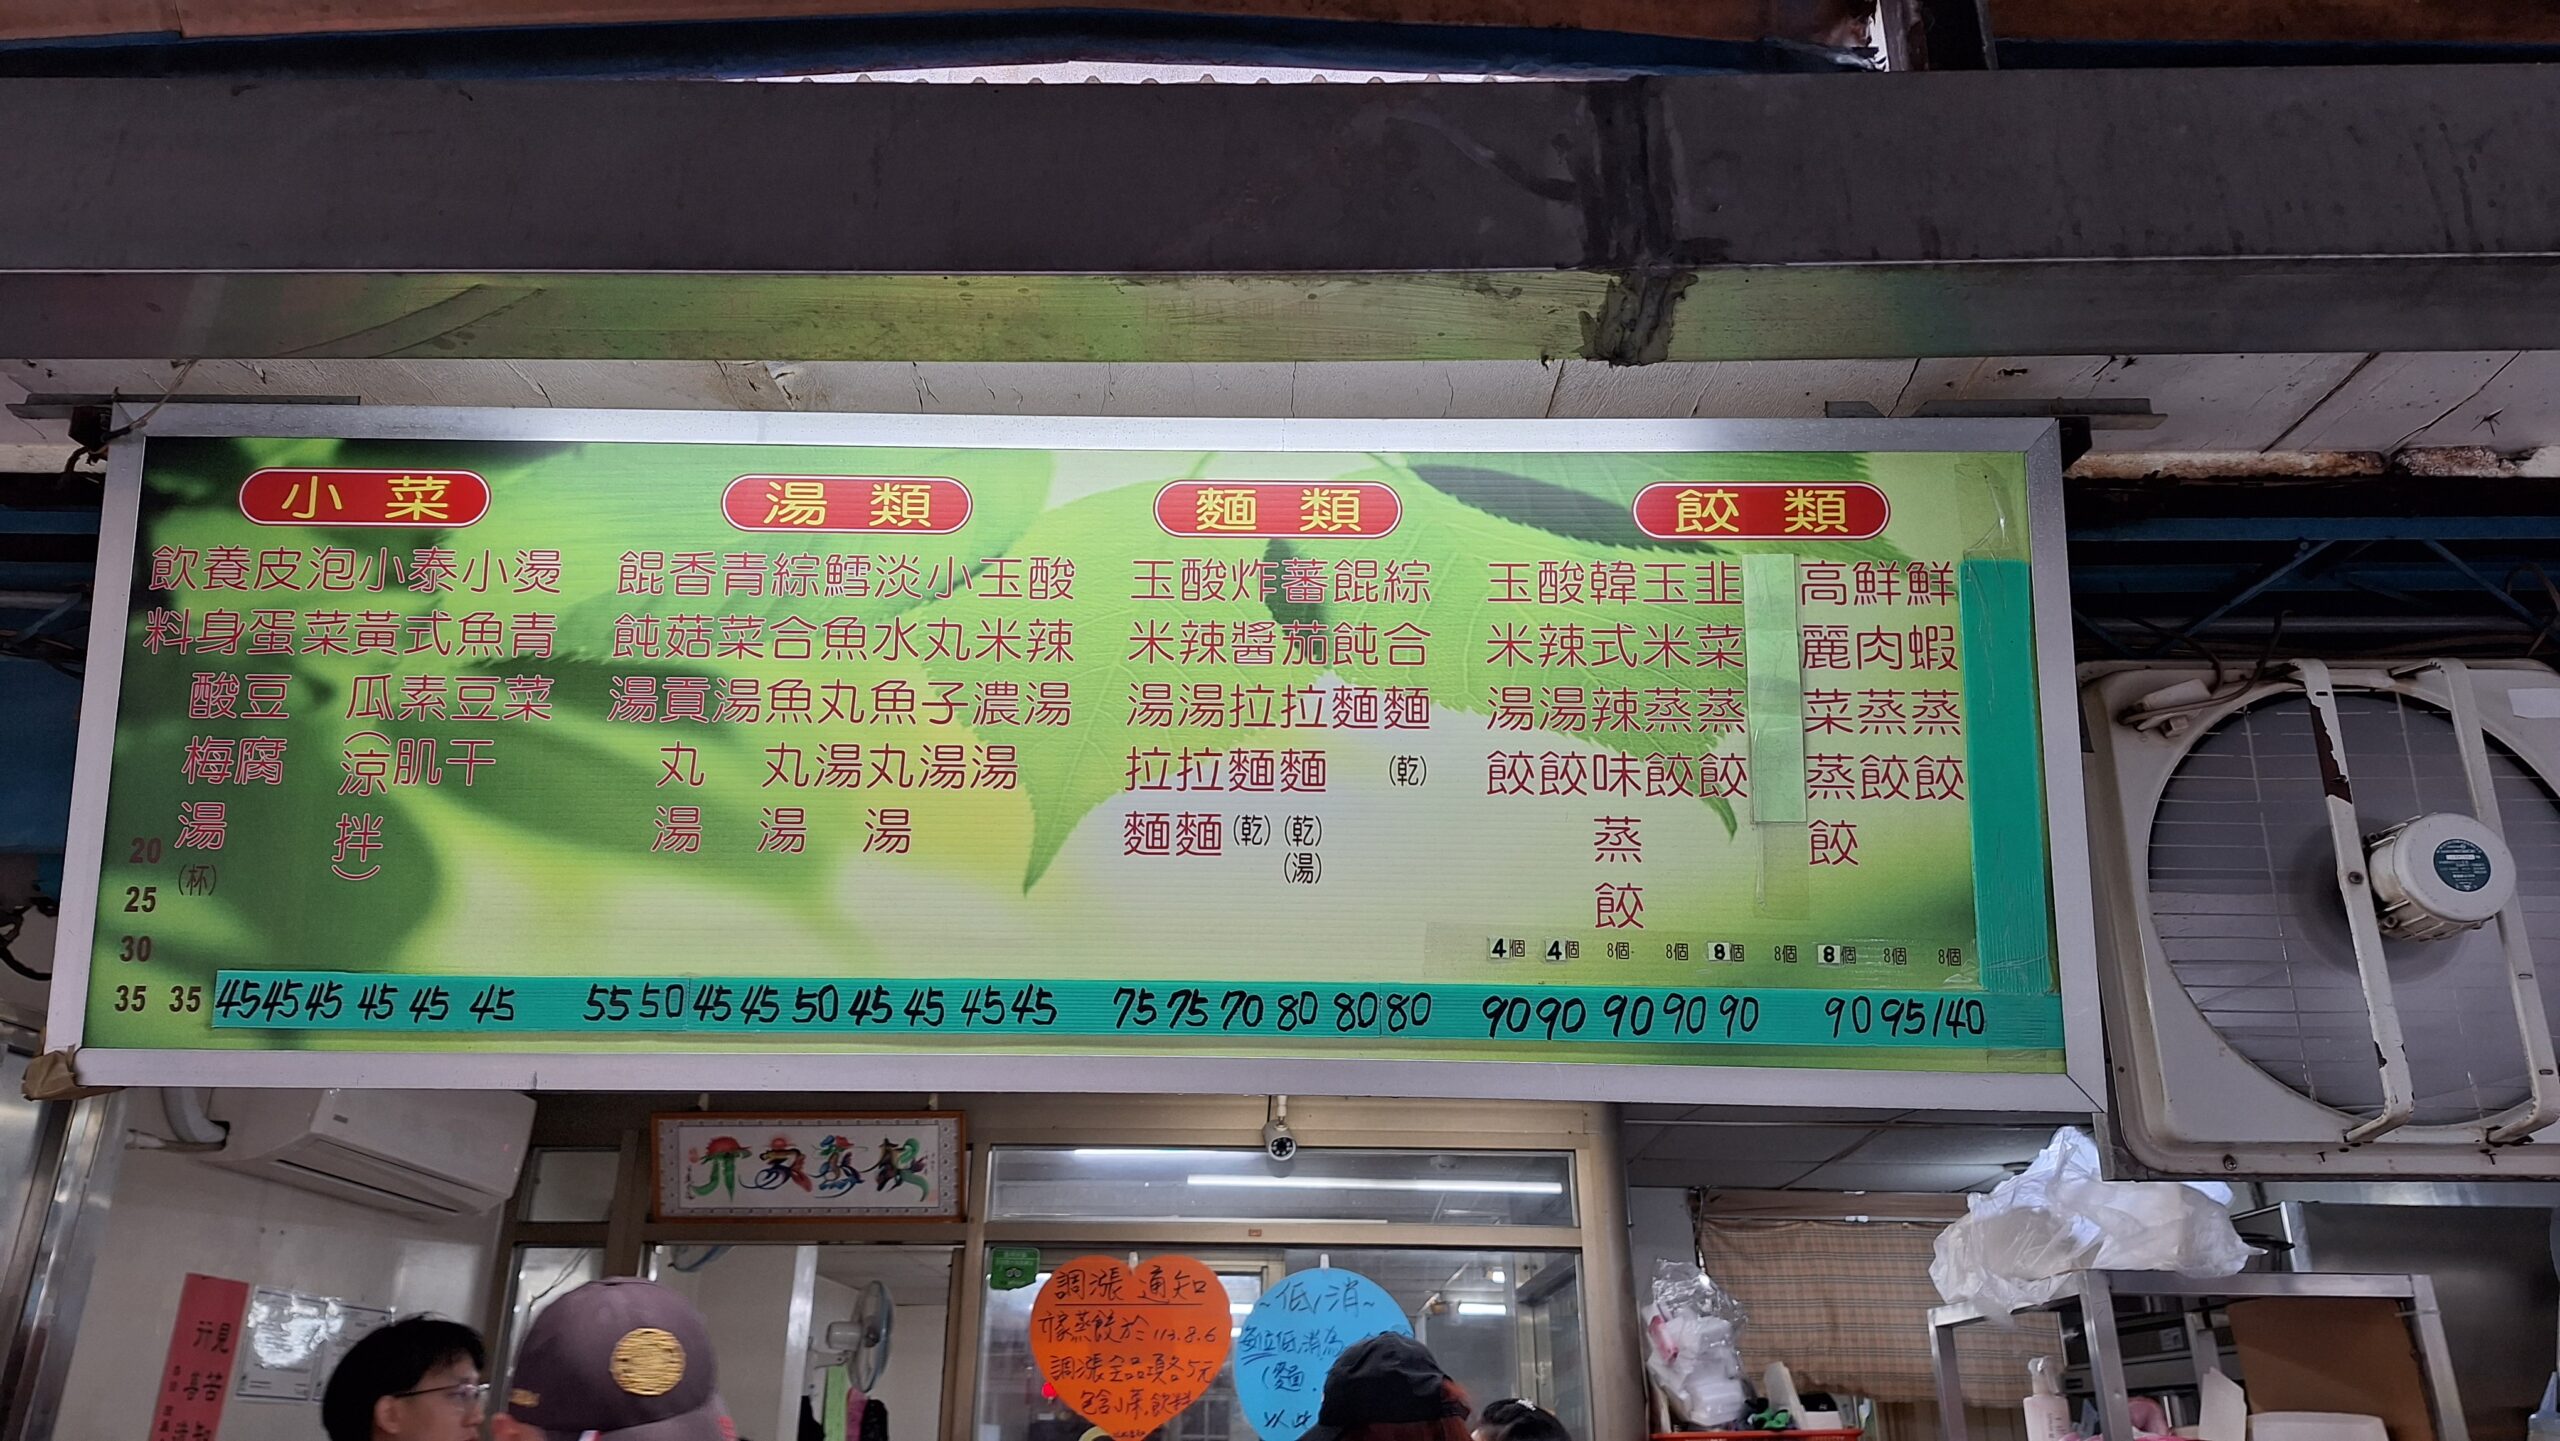 餃類
鮮蝦蒸餃 8個 140
鮮肉蒸餃 8個 95
高麗菜蒸餃 8個 90
8個
韭菜蒸餃 8個 90
玉米蒸餃 8個 90
韓式辣味蒸餃 8個 90
酸辣湯餃 4個 90
玉米湯餃 4個 90
麵類
綜合麵(乾) 80
餛飩麵 80
蕃茄拉麵(乾)(湯) 80
炸醬拉麵(乾) 70
酸辣湯拉麵 75
玉米湯拉麵 75
湯類
酸辣湯 45
玉米濃湯 45
小丸子湯 45
淡水魚丸湯 45
鱈魚丸湯 50
綜合魚丸湯 45
青菜湯 45
香菇貢丸湯 50
餛飩湯 55
小菜
燙青菜 45
小魚豆干 45
泰式素肌 45
小黃瓜(涼拌) 45
泡菜 45
皮蛋豆腐 45
養身酸梅湯(杯) 35
飲料 20 25 30 35
調漲通知
亓家蒸餃於113.8.6
調漲全品項各5元
包含小菜,飲料
~低消~
每位低消為
(麵.
以此